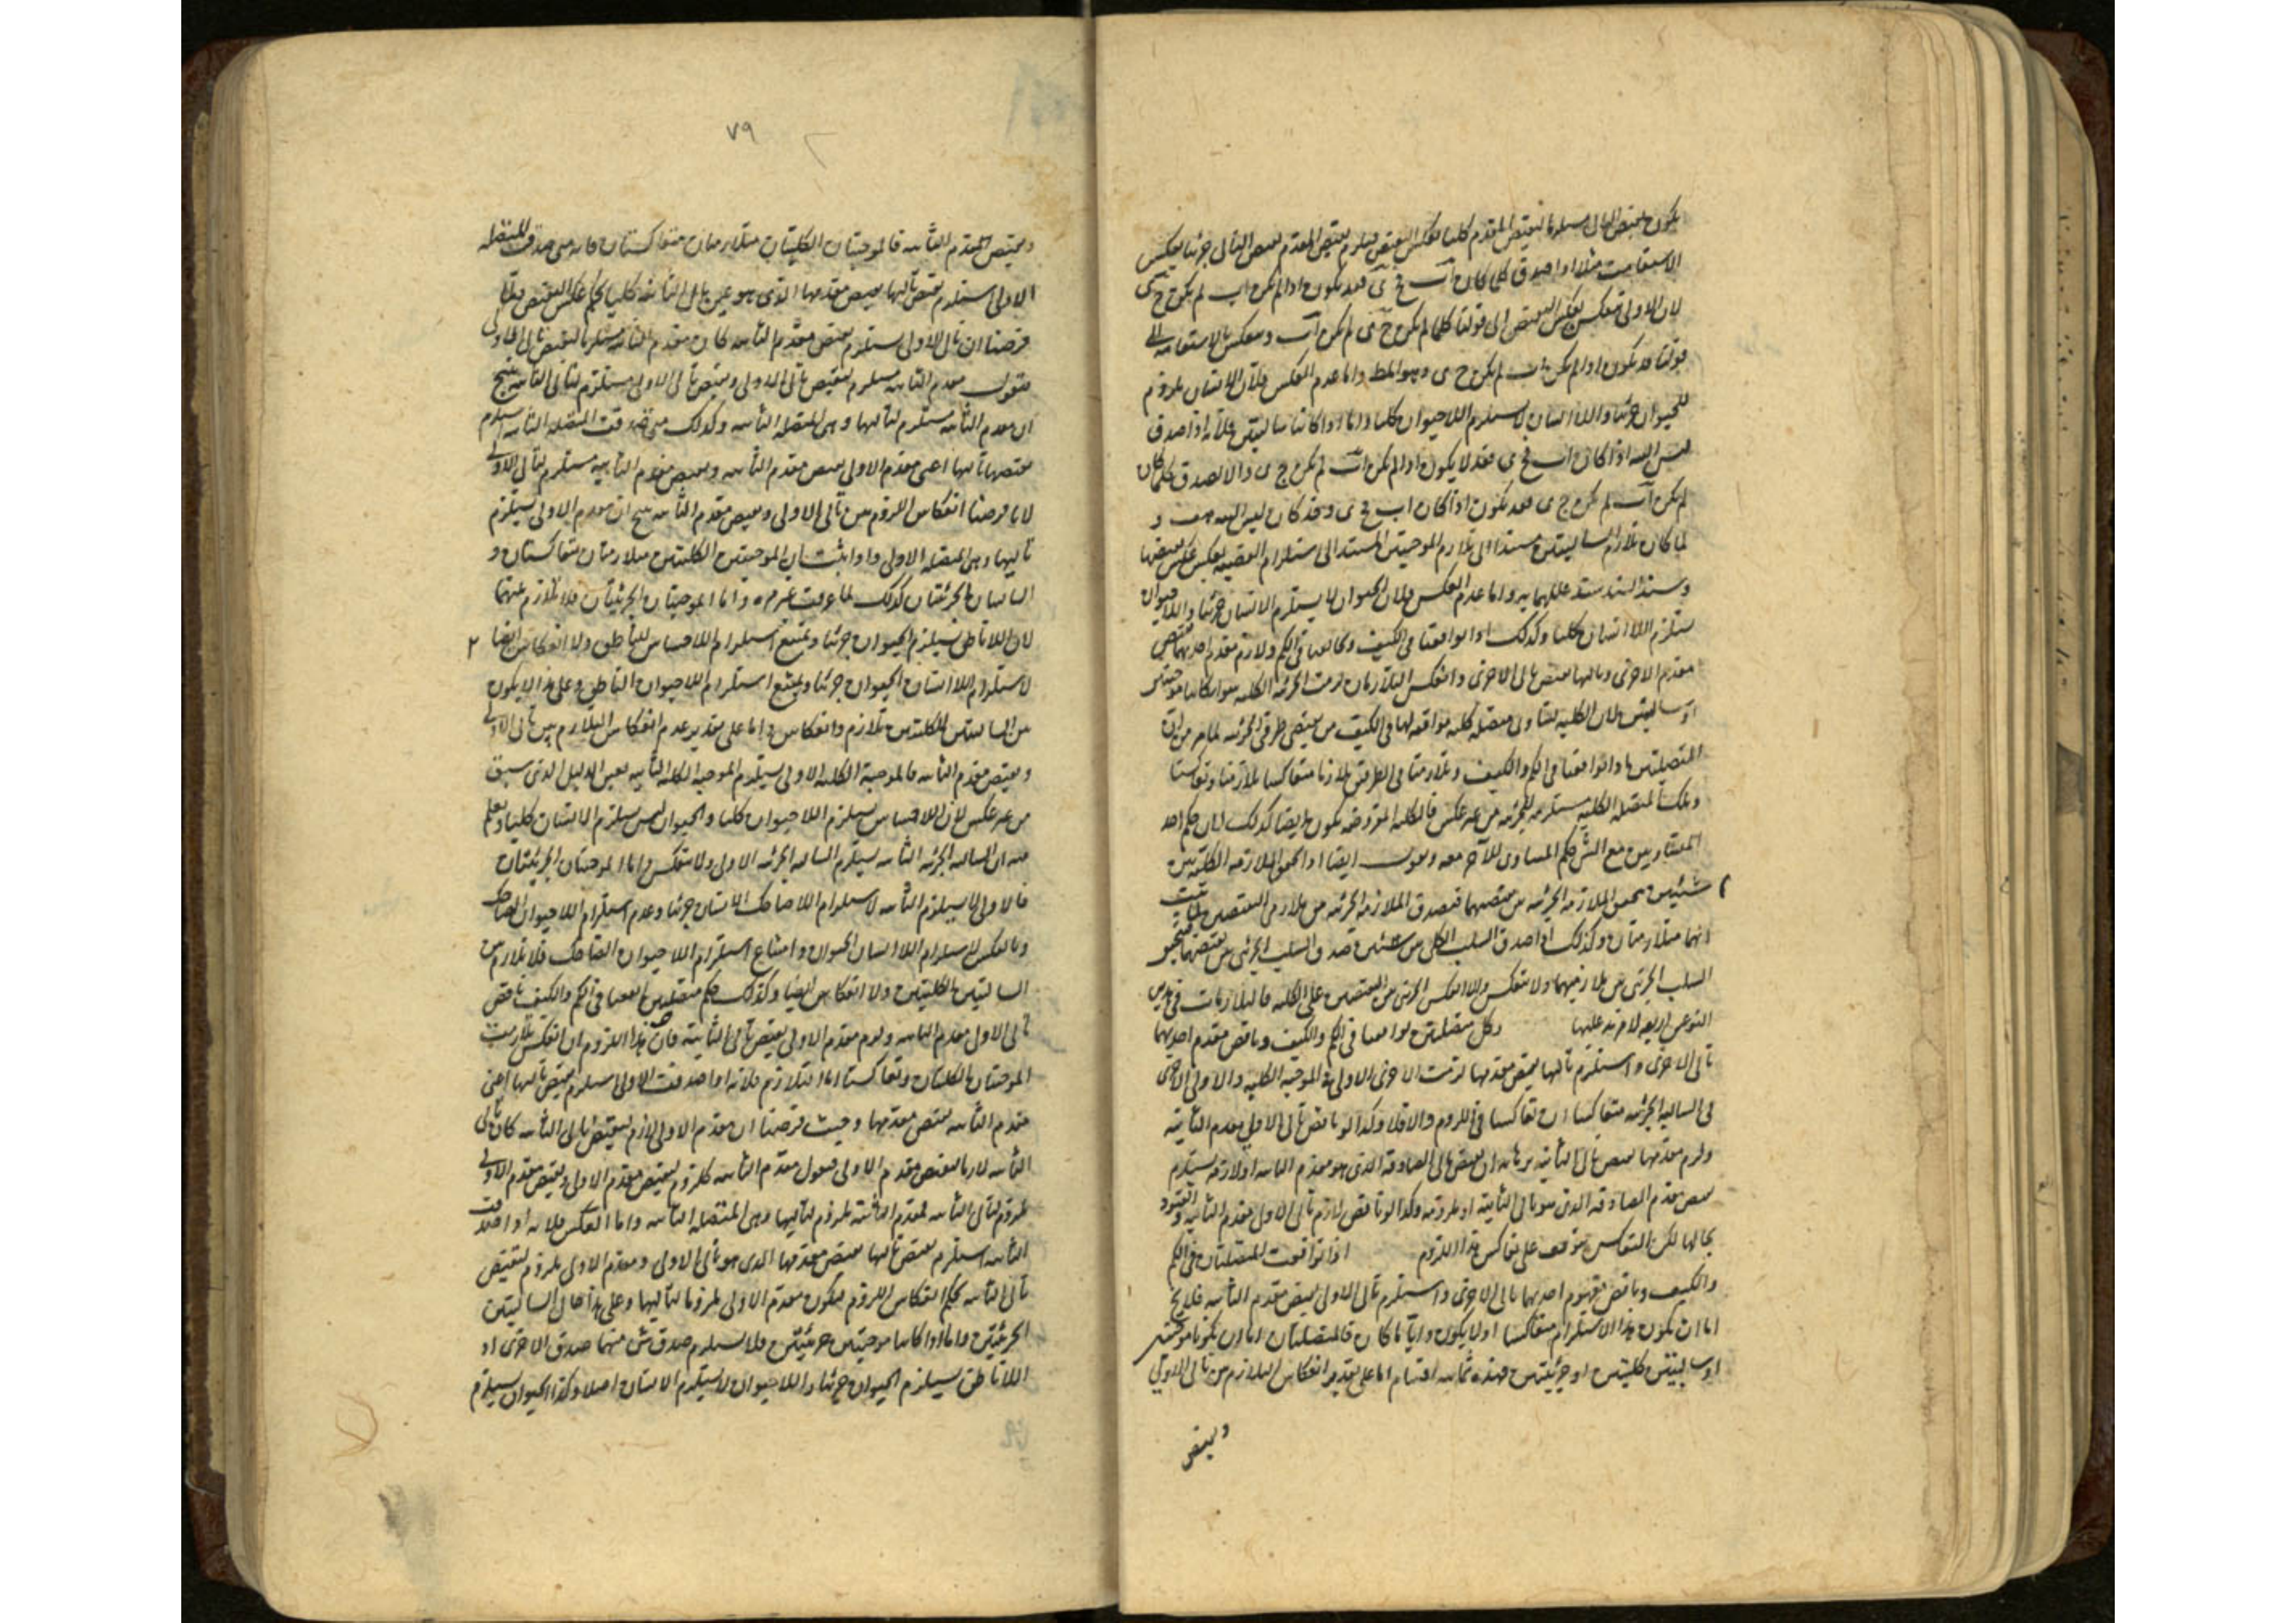 يكون نقيض التالى مستلزما لنقيض المقدم كليا بعكس النقيض فيلزم نقيض المقدم نقيض التالى جزئيا بعكس
الاستقامة مثلا اذا صدق كلما كان اب فج ى فقد يكون اذا لم يكن اب لم يكن ج ى
لان الاولى تنعكس بعكس النقيض الى قولنا كلما لم يكن ج ى لم يكن اب وتنعكس بالاستقامة الى
قولنا قد يكون اذا لم يكن اب لم يكن ج ى وهو المط واما عدم العكس فلان الانسان ملزوم
للحيوان جزئيا واللاانسان لا يستلزم اللاحيوان كليا واما اذا كانتا سالبتين فلانه اذا صدق
ليس البتة اذا كان اب فج ى فقد لا يكون اذا لم يكن اب لم يكن ج ى والا لصدق كلما كان
لم يكن اب لم يكن ج ى فقد يكون اذا كان اب فج ى وقد كان ليس البتة هف و
لما كان تلازم السالبتين مستندا الى تلازم الموجبتين المستند الى استلزام القضية بعكس عكس نقيضها
واما عدم العكس فلان الحيوان لا يستلزم الانسان جزئيا واللاحيوان
يستلزم اللاانسان كليا وكذلك اذا توافقتا فى الكيف وتخالفتا فى الكم ولازم مقدم احديهما نقيض
مقدم الاخرى وتاليها نقيض تالى الاخرى وانعكس التلازمان لزمت الجزئية الكلية سواء كانتا موجبتين
او سالبتين لان الكلية تساوى متصلة كلية موافقة لها فى الكيف من نقيضى طرفى الجزئية لما مر من ان
المتصلتين اذا توافقتا فى الكم والكيف وتلازمتا فى الطرفين تلازما متعاكسا تلازمتا وتعاكستا
وتلك المتصلة الكلية مستلزمة للجزئية من غير عكس فالكلية المفروضة تكون ايضا كذلك لان حكم احد
المتساويين مع الشئ حكم المساوى للآخر معه ونقول ايضا اذا تحقق الملازمة الكلية بين
شيئين تحقق الملازمة الجزئية بين نقيضيهما فتصدق الملازمة الجزئية بين ملازمى النقيضين لما ثبت
انهما متلازمتان وكذلك اذا صدق السلب الكلى بين شيئين صدق السلب الجزئى بين نقيضيهما فيتحقق
السلب الجزئى بين ملازميهما ولا تنعكس والا انعكس الجزئى بين النقيضين على الكلية فالملازمات فى هذين
النوعين اربعة لا مزيد عليها وكل متصلتين توافقتا فى الكم والكيف وناقض مقدم احديهما
تالى الاخرى واستلزم تاليها نقيض مقدمها لزمت الاخرى الاولى فى الموجبة الكلية والاولى الاخرى
فى السالبة الجزئية متعاكسا ان تعاكسا فى اللزوم والا فلا وكذا لو ناقض تالى الاولى مقدم الثانية
ولزم مقدمها نقيض تالى الثانية برهانه ان نقيض تالى الصادقة الذى هو مقدم الثانية او لازمه يستلزم
نقيض مقدم الصادقة الذى هو تالى الثانية او ملزومه وكذا لو ناقض لازم تالى الاولى مقدم الثانية والقيود
بحالها لكن التعاكس متوقف على تعاكس هذا اللزوم اذا توافقت المتصلتان فى الكم
والكيف وناقض مقدم احديهما تالى الاخرى واستلزم تالى الاولى نقيض مقدم الثانية فلا يخ
اما ان يكون هذا الاستلزام متعاكسا او لا يكون وايا ما كان فالمتصلتان اما ان يكونا موجبتين
او سالبتين كليتين او جزئيتين فهذه ثمانية اقسام اما على تقدير انعكاس التلازم بين تالى الاولى
ونقيض
٧٩
ونقيض مقدم الثانية فالموجبتان الكليتان متلازمتان متعاكستان فانه متى صدقت المتصلة
الاولى استلزم نقيض تاليها نقيض مقدمها الذى هو عين تالى الثانية كليا بحكم عكس النقيض فلما
فرضنا ان تالى الاولى يستلزم نقيض مقدم الثانية كان مقدم الثانية مستلزما لنقيض تالى الاولى
فنقول مقدم الثانية مستلزم لنقيض تالى الاولى ونقيض تالى الاولى مستلزم لتالى الثانية ينتج
ان مقدم الثانية مستلزم لتاليها وهى المتصلة الثانية وكذلك متى صدقت المتصلة الثانية استلزم
نقيض تاليها اعنى مقدم الاولى نقيض مقدم الثانية ونقيض مقدم الثانية مستلزم لتالى الاولى
لانا فرضنا انعكاس اللزوم بين تالى الاولى ونقيض مقدم الثانية ينتج ان مقدم الاولى يستلزم
تاليها وهى المتصلة الاولى واذا ثبت ان الموجبتين الكليتين متلازمتان متعاكستان و
السالبتان الجزئيتان كذلك لما عرفت غير مرة واما الموجبتان الجزئيتان فلا تلازم بينهما
لان اللاناطق يستلزم الحيوان جزئيا ويمتنع استلزام اللاحساس للناطق ولا انعكاس ايضا
لاستلزام اللاانسان الحيوان جزئيا ويمتنع استلزام اللاحيوان الناطق وعلى هذا لا يكون
بين السالبتين الكليتين تلازم وانعكاس واما على تقدير عدم انعكاس التلازم بين تالى الاولى
ونقيض مقدم الثانية فالموجبة الكلية الاولى تستلزم الموجبة الكلية الثانية بعين الدليل الذى سبق
من غير عكس لان اللاحساس يستلزم اللاحيوان كليا والحيوان ليس يستلزم الانسان كليا ويعلم
منه ان السالبة الجزئية الثانية تستلزم السالبة الجزئية الاولى ولا تنعكس واما الموجبتان الجزئيتان
فالاولى لا تستلزم الثانية لاستلزام اللاضاحك الانسان جزئيا وعدم استلزام اللاحيوان الضاحك
وبالعكس لاستلزام اللاانسان الحيوان وامتناع استلزام اللاحيوان الضاحك فلا تلازم بين
السالبتين الكليتين ولا انعكاس ايضا وكذلك حكم متصلتين توافقتا فى الكم والكيف ناقض
تالى الاولى مقدم الثانية ولزم مقدم الاولى نقيض تالى الثانية فان هذا اللزوم ان انعكس تلازمت
الموجبتان الكليتان وتعاكستا اما التلازم فلانه اذا صدقت الاولى استلزم نقيض تاليها اعنى
مقدم الثانية نقيض مقدمها وحيث فرضنا ان مقدم الاولى لازم لنقيض تالى الثانية كان تالى
الثانية لازما لنقيض مقدم الاولى فنقول مقدم الثانية ملزوم لنقيض مقدم الاولى ونقيض مقدم الاولى
ملزوم لتالى الثانية فمقدم الثانية ملزوم لتاليها وهى المتصلة الثانية واما العكس فلانه اذا صدقت
الثانية استلزم نقيض تاليها نقيض مقدمها الذى هو تالى الاولى ومقدم الاولى ملزوم لنقيض
تالى الثانية بحكم انعكاس اللزوم فيكون مقدم الاولى ملزوما لتاليها وعلى هذا حال السالبتين
الجزئيتين واما اذا كانتا موجبتين جزئيتين فلا يستلزم صدق شئ منهما صدق الاخرى اذ
اللاناطق يستلزم الحيوان جزئيا واللاحيوان لا يستلزم الانسان اصلا وكذا الحيوان يستلزم